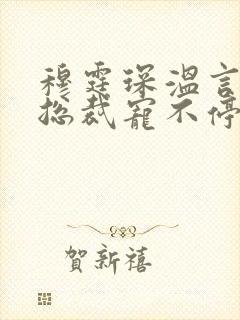 穆霆琛温言
总裁宠不停
贺新禧